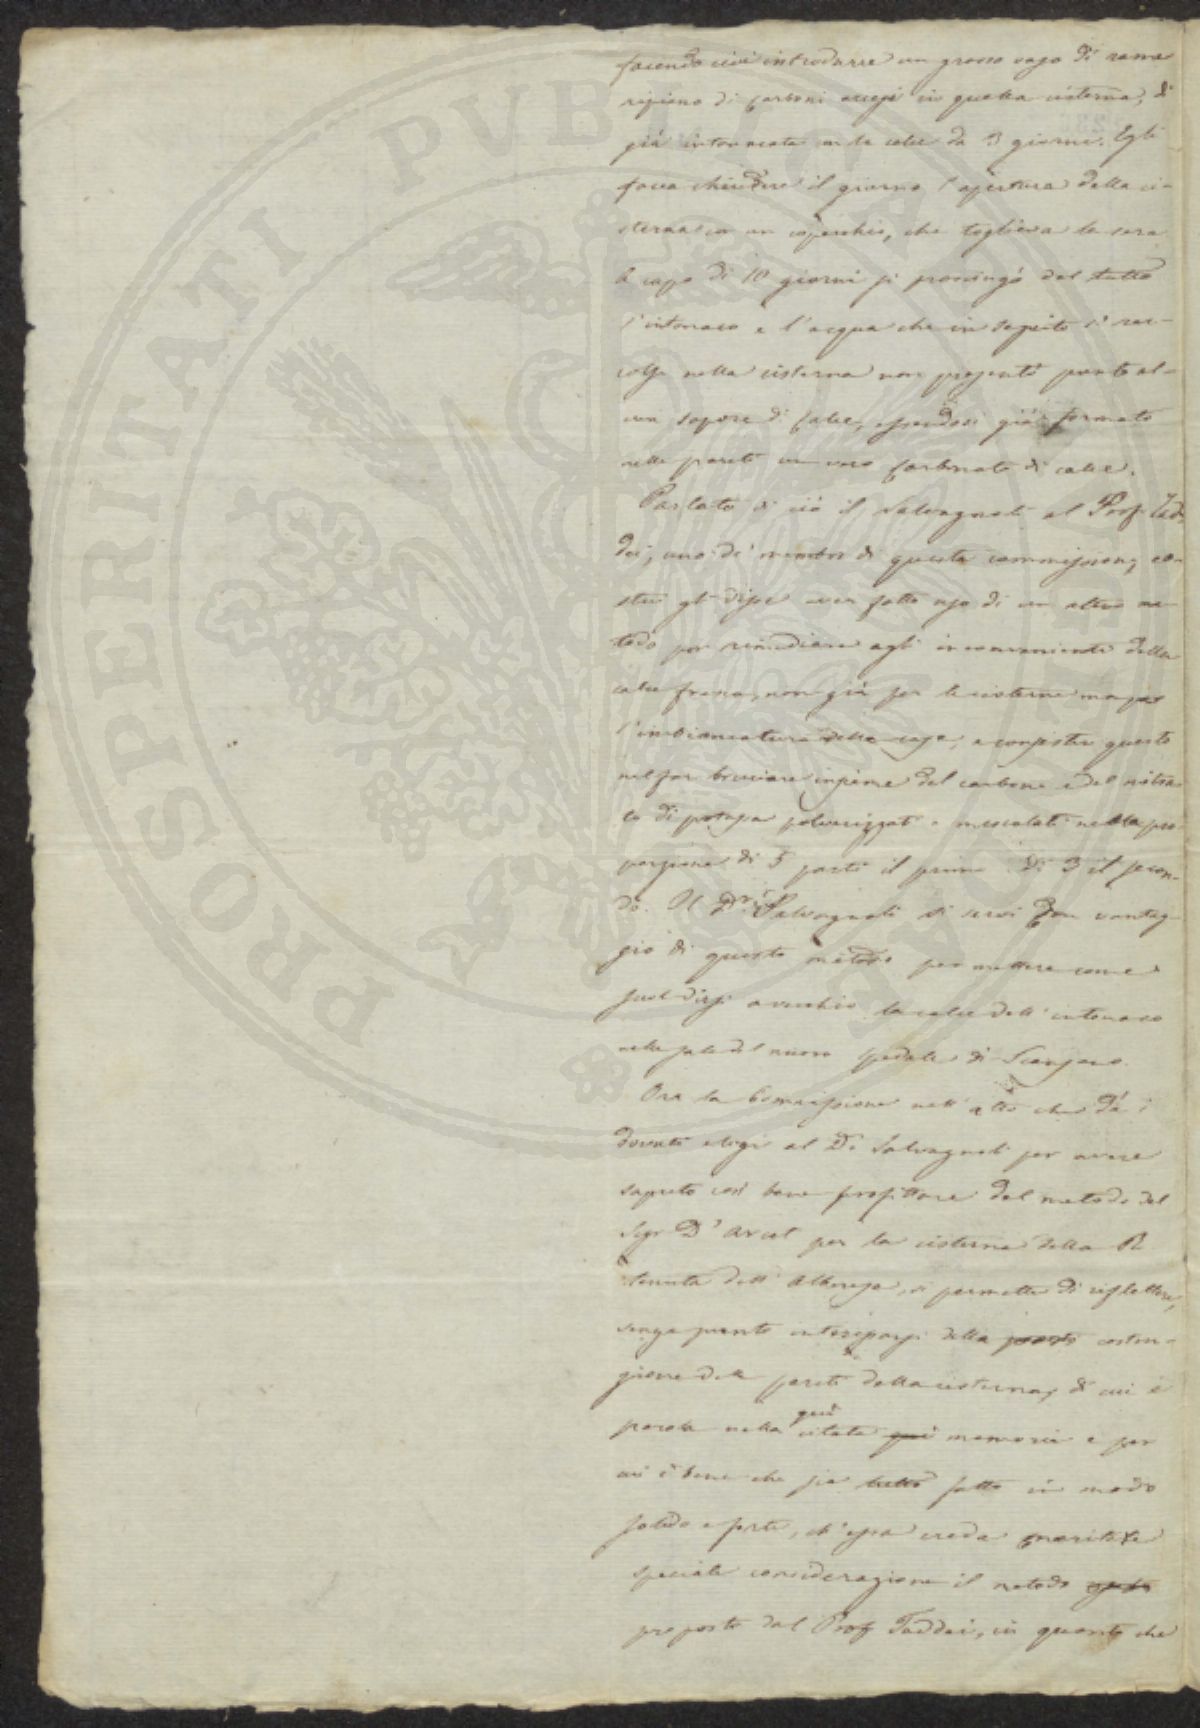 PROSPERITATI PUBLICAE AUGENDAE
facendo ivi introdurre un grosso vaso di rame
ripieno di carboni accesi in quella cisterna, di
già intonacata con la calce da 3 giorni. Egli
facea chiudere il giorno l'apertura della ci-
sterna con un coperchio, che toglieva la sera
A capo di 10 giorni si prosciugò del tutto
l'intonaco e l'acqua che in seguito si rac-
colse nella cisterna non presentò punto al-
cun sapore di calce, essendosi già formato
nelle pareti un vero carbonato di calce.
Parlato di ciò il Salvagnoli al Prof. Tad-
dei, uno de' membri di questa commissione, co-
stui gli disse aver fatto uso di un altro me-
todo per rimediare agli inconvenienti della
calce fresca, non già per le cisterne ma per
l'imbiancatura delle case, e consister questo
nel far bruciare insieme del carbone e del nitra-
to di potassa polverizzati e mescolati nella pro-
porzione di 5 parti il primo di 3 il secon-
do. Il Dr. Salvagnoli si servì con vantag-
gio di questo metodo per mettere come
suol dirsi a vecchio la calce dell'intonaco
nelle sale del nuovo spedale di Scansano.
Ora la Commissione nell'atto che dà i
dovuti elogi al Dr. Salvagnoli per avere
saputo così bene profittare del metodo del
Sigr D'Arcet per la cisterna della R.
tenuta dell'Alberese, si permette di riflettere,
senza punto interessarsi della costru-
zione delle pareti della cisterna, di cui è
parola nella quì citata quì memoria e per
cui è bene che sia tutto fatto in modo
solido e forte, ch'essa creda meritare
speciale considerazione il metodo
proposto dal Prof Taddei, in quanto che